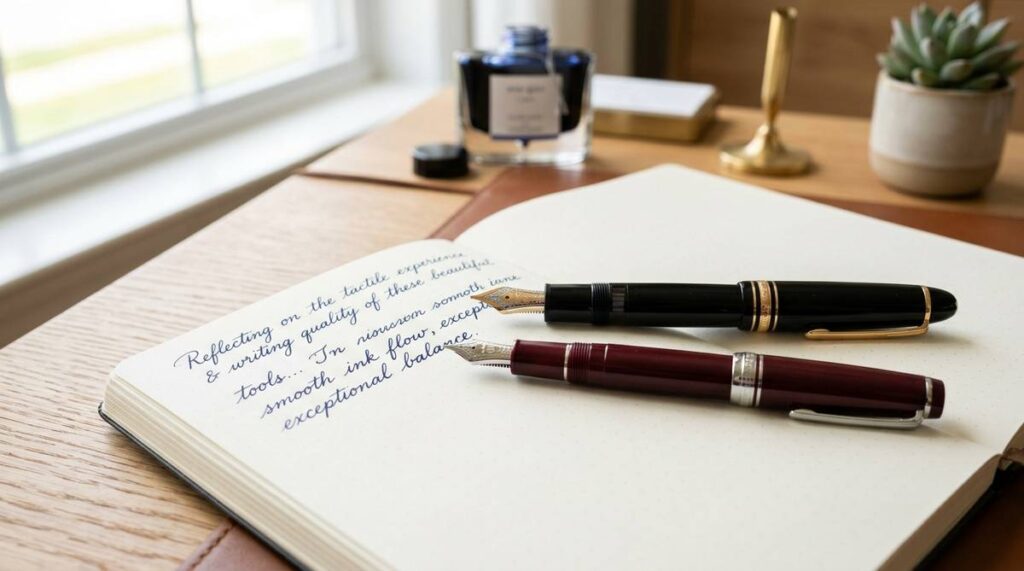 Reflecting on the tactile experience
& writing quality of these beautiful
tools... In
smooth ink flow, except
exceptional balance.